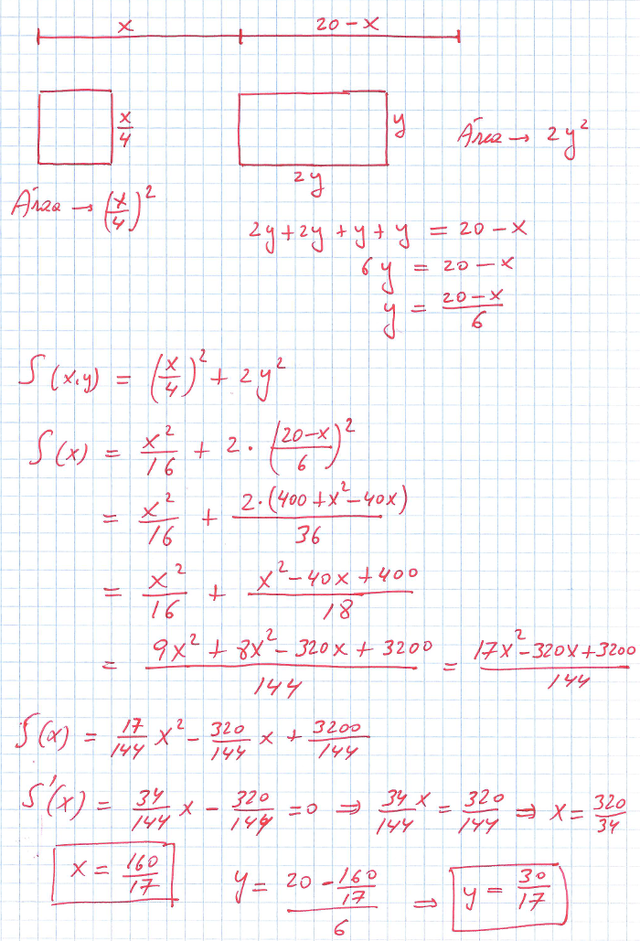 x 20-x
x/4
y
Área → 2y²
2y
Área → (x/4)²
2y+2y+y+y = 20-x
6y = 20-x
y = (20-x)/6
S(x,y) = (x/4)² + 2y²
S(x) = x²/16 + 2·((20-x)/6)²
= x²/16 + 2·(400+x²-40x)/36
= x²/16 + (x²-40x+400)/18
= (9x² + 8x² - 320x + 3200)/144 = (17x²-320x+3200)/144
S(x) = 17/144 x² - 320/144 x + 3200/144
S'(x) = 34/144 x - 320/144 = 0 ⇒ 34x/144 = 320/144 ⇒ x = 320/34
x = 160/17 y = (20 - 160/17)/6 ⇒ y = 30/17